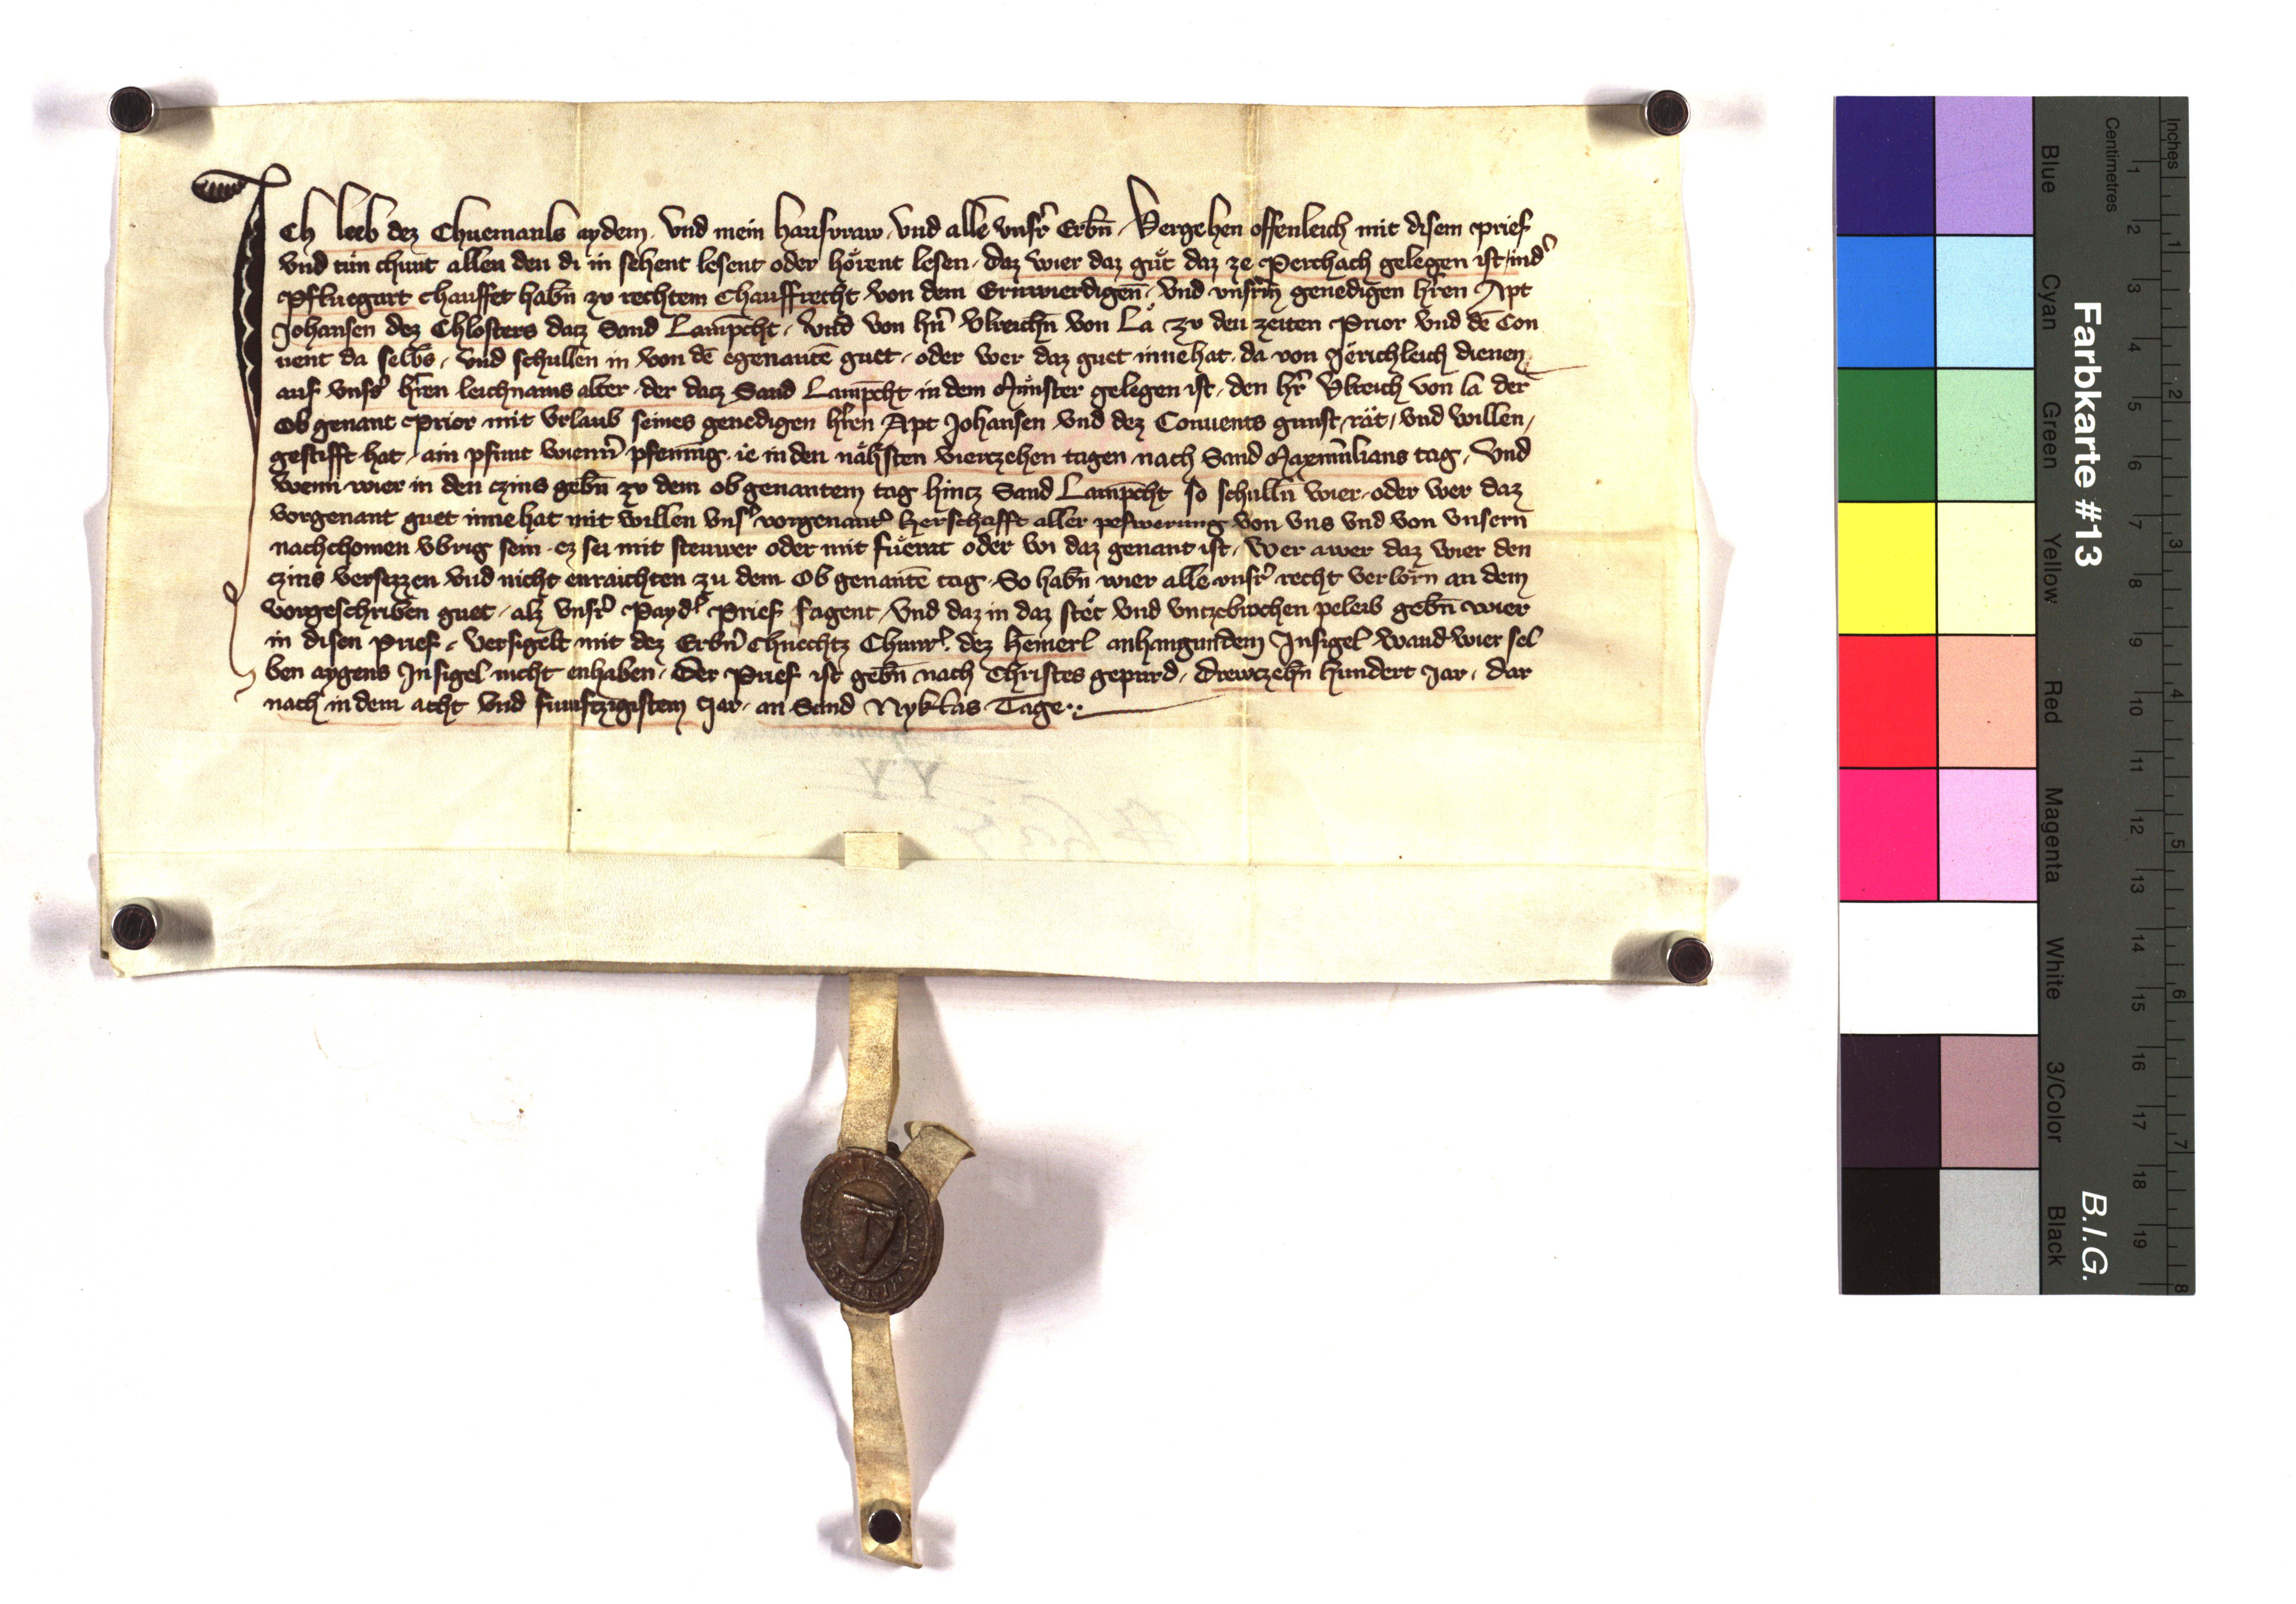 Ich leeb dez Chuemanls aydem, Vnd mein hausvraw, Vnd alle vnsr̉ Erbn̄, Vergehen offenleich mit disem prief
Vnd tůn chunt allen den di in sehent lesent oder hörent lesen, daz wier daz gůt daz ze Perchach gelegen ist, ind̉
Pfluegart chauffet habn̄ zv rechtem Chauffrecht von dem Ernwierdigen̄, Vnd vnsrm̄ genedigen hr̄en Apt
Johansen dez Chlosters datz Sand Lamp̄cht, Vnd von hn̉ Vlreichn̄ von Lă zv den zeiten Prior Vnd dē Con
uent da selbs, Vnd schullen in von dē egenantē guet, oder wer daz guet inne hat, da von Järichleich dienen
auf vnss̉ hr̄en leichnams alter, der datz Sand Lamp̄cht in dem Můnster gelegen ist, den hr̉ Vlreich von la der
Ob genant Prior mit Vrlaub seines genedigen hr̄en Apt Johansen Vnd dez Conuents gunst, rät, Vnd willen,
gestifft hat, ain pfunt wienn̉ pfennīg, ie in den nähsten Viertzehen tagen nach Sand Maxim̄ilians tag, Vnd
wenn wier in den czins gebn̄ zv dem ob genantem tag hintz Sand Lamp̄cht so schulln̄ wier, oder wer daz
vorgenant guet inne hat mit willen vns̉ vorgenant̉ herschafft aller peswerung von vns Vnd von vnsern
nachchomen vbrig sein, ez sei mit steuwer oder mit fůerat oder wi daz genant ist, Wer awer daz wier den
czins versezzen Vnd nicht enraichten zu dem Ob genantē tag, So habn̄ wier alle vnsr̉ recht verlorn an dem
vorgeschriben guet, alz vnsr̉ Payd̉ Prief sagent, Vnd daz in daz stët Vnd vntzebrochen peleib gebn̄ wier
in disen Prief, Versigelt mit dez Erbn̉ Chnechtz Chunr̉. dez heinerl anhangundem Insigel, wand wier sel
ben aygens Insigel nicht enhaben, Der Prief ist gebn̄ nach Christes gepurd, Drewtzehn̄ hundert Jar, dar
nach in dem acht Vnd fumftzigistem Jar, an Sand Nyklas Tage..
Farbkarte #13
B.I.G.
Centimetres
Inches
Blue
Cyan
Green
Yellow
Red
Magenta
White
3/Color
Black
1
2
3
4
5
6
7
8
9
10
11
12
13
14
15
16
17
18
19
1
2
3
4
5
6
7
8